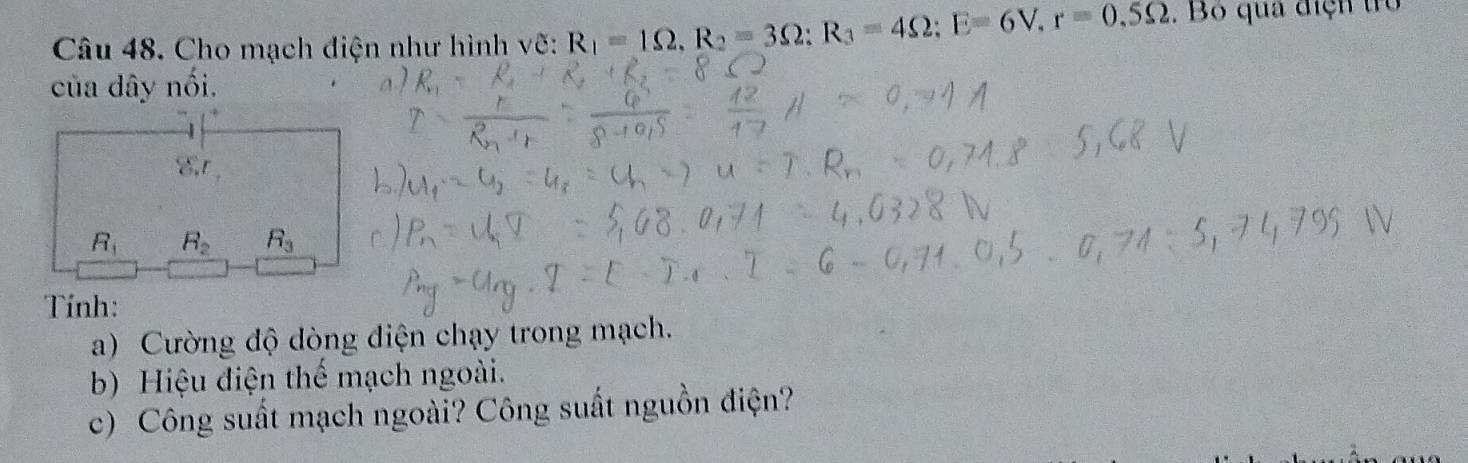 Câu 48. Cho mạch điện như hình vẽ: R₁ = 1Ω, R₂ = 3Ω; R₃ = 4Ω; E= 6V, r = 0,5Ω. Bỏ qua điện trở
của dây nối.
a) Rₙ = R₁ + R₂ + R₃ = 8 Ω
I = E/(Rₙ+r) = 6/(8+0,5) = 12/17 A ≈ 0,71 A
b) U₁ = U₂ = U₃ = Uₙ => U = I.Rₙ = 0,71.8 = 5,68 V
c) Pₙ = Uₙ I = 5,68.0,71 = 4,0328 W
Png = Ung.I = E - I.r.I = 6 - 0,71.0,5.0,71 = 5,74,795 W
- +
ℰ,r,
R₁ R₂ R₃
Tính:
a) Cường độ dòng điện chạy trong mạch.
b) Hiệu điện thế mạch ngoài.
c) Công suất mạch ngoài? Công suất nguồn điện?